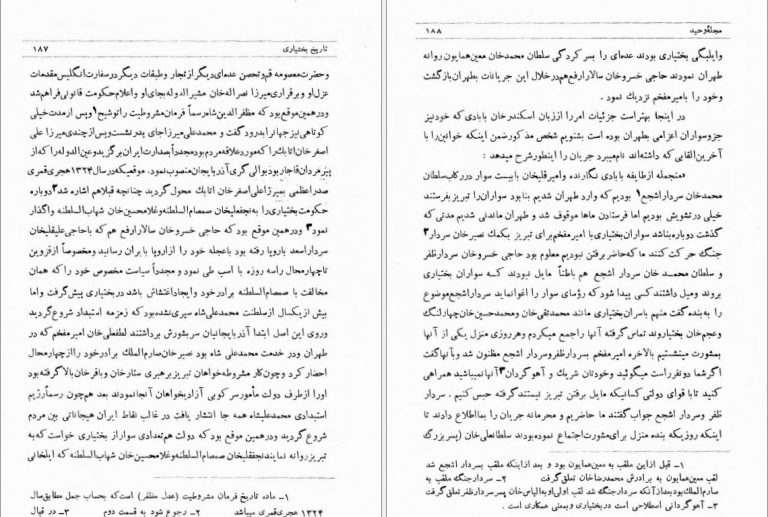 تاریخ بختیاری ۱۸۷
وحضرت معصومه قم وتحصن عده‌ای دیگر از تجار و طبقات دیگر درسفارت انگلیس مقدمات
عزل او و برقراری میرزا نصراله خان مشیرالدوله بجای او واعلام حکومت قانونی فراهم شد
ودرهمین موقع بود که مظفرالدین شاه رسماً فرمان مشروطیت را توشیح۱ وپس از مدت خیلی
کوتاهی نیز جهانرا بدرود گفت و محمدعلی میرزا جای پدر نشست وپس از چندی میرزا علی
اصغرخان اتابک را که مورد علاقه مردم بود مجدداً بصدارت ایران برگزید وعین الدوله را که از
پیرمردان قاجار بود بوالی گری آذربایجان منصوب نمود. موقعیکه درسال ۱۳۲۴هجری قمری
صدراعظمی بمیرزا علی اصغرخان اتابک محول گردید چنانچه قبلاهم اشاره شد۲ دوباره
حکومت بختیاری را به نجفقلیخان صمصام السلطنه وغلامحسین خان شهاب السلطنه واگذار
نمود۳ ودرهمین موقع بود که حاجی خسروخان سالارارفع هم که باحاجی علیقلیخان
سردار اسعد باروپا رفته بود باعجله خود را ازاروپا بایران رسانید ومخصوصاً ازقزوین
تاچهارمحال راسه روزه با اسب طی نمود و مجدداً سیاست مخصوص خود را که همان
مخالفت با صمصام السلطنه برادرخود وایجاد اغتشاش باشد دربختیاری پیش گرفت واما
بیش ازیکسال ازسلطنت محمدعلی شاه سپری نشده بود که زمزمه استبداد شروع گردید
وروی این اصل ابتدا آذربایجانیان سربشورش برداشتند لطفعلی خان امیرمفخم که در
طهران ودر خدمت محمدعلی شاه بود نصیرخان صارم الملک برادرخود را ازچهارمحال
احضار کرد وچون کار مشروطه خواهان تبریز برهبری ستارخان وباقرخان بالاگرفته بود
اورا ازطرف دولت مأمور سرکوبی آزادیخواهان آنجا نمودند بعد هم چون رسماً رژیم
استبدادی محمدعلیشاه همه جا انتشار یافت در غالب نقاط ایران هیجاناتی بین مردم
شروع گردید ودرهمین موقع بود که دولت هم تعدادی سوار از بختیاری خواست که به
تبریز روانه نمایند نجفقلیخان صمصام السلطنه وغلامحسین خان شهاب السلطنه که ایلخانی
۱– ماده تاریخ فرمان مشروطیت (عدل مظفر) است که بحساب جمل مطابق سال
۱۳۲۴ هجری قمری میباشد ۲– رجوع شود به قسمت دوم ۳– در قبال
مجلهٔ وحید ۱۸۸
وایلبگی بختیاری بودند عده‌ای را بسر کردگی سلطان محمدخان معین همایون روانه
طهران نمودند حاجی خسروخان سالارارفع هم درخلال این جریانات بطهران بازگشت
وخود را بامیرمفخم نزدیك نمود .
در اینجا بهتراست جزئیات امررا اززبان اسکندرخان بابادی که خود نیز
جزوسواران اعزامی بطهران بوده است بشنویم شخص مذکور ضمن اینکه خوانین را با
آخرین القابی که داشته‌اند نام میبرد جریان را اینطورشرح میدهد :
«منجمله ازطایفه بابادی نگارنده وامیرقلیخان بابیست سوار دررکاب سلطان
محمدخان سردار اشجع۱ بودیم که وارد طهران شدیم بنابود سواران را تبریز بفرستند
خیلی درتشویش بودیم اما فرستادن ماها موقوف شد و طهران ماندنی شدیم مدتی که
گذشت دوباره بناشد سواران بختیاری با امیرمفخم برای تبریز بکمك نصیرخان سردار۲
جنگ حرکت کنند ما که حاضر برفتن نبودیم معلوم بود حاجی خسروخان سردار ظفر
و سلطان محمد خان سردار اشجع هم باطناً مایل نبودند کسه سواران بختیاری
بروند ومیل داشتند کسی پیدا شود که رؤسای سوار را اغوا نماید سرداراشجع موضوع
را به بنده گفت منهم باسران بختیاری مانند محمدتقی خان ومحمدحسین خان چهارلنگ
وعجم خان بختیاروند تماس گرفته آنها راجمع میکردم وهرروزی منزل یکی از آنها
بمشورت مینشستیم بالاخره امیرمفخم بسردارظفر وسردار اشجع مظنون شد وبآنها گفت
اگر شما دونفر راست میگوئید وخودتان شریك و آهوگردان۳ آنها نمیباشید همراهی
کنید تا با قوای دولتی کسانیکه مایل برفتن تبریز نیستند گرفته حبس کنیم . سردار
ظفر وسردار اشجع جواب گفتند ما حاضریم و محرمانه جریان را بمااطلاع دادند تا
اینکه روزیکه بنده منزل برای مشورت اجتماع نموده بودند سلطانعلی خان (پسربزرگ
۱– قبل ازاین ملقب به معین همایون بود و بعد ازاینکه ملقب بسردار اشجع شد
لقب معین همایون به برادرش محمدرضاخان تعلق گرفت ۲– سردارجنگ ملقب به
صارم الملك بود بعدازآنکه سردارجنگ شد لقب اولی او به الیاس خان پسرسردارظفر تعلق گرفت
۳– آهوگردانی اصطلاحی است دربختیاری وبمعنی همکاری است .